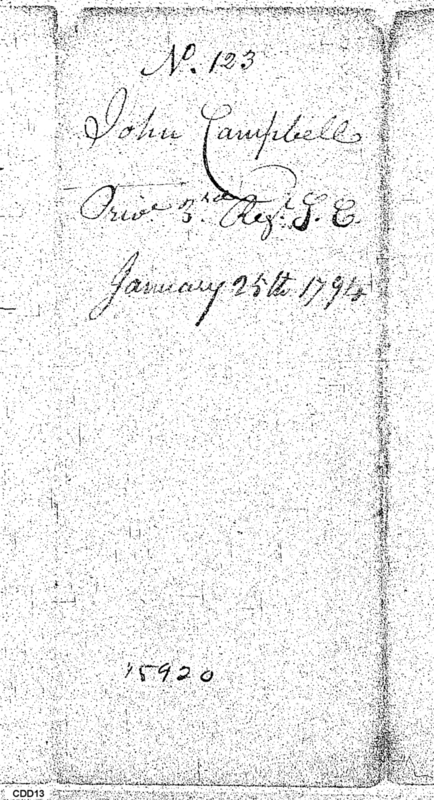 No. 123
John Campbell
Priv.e 3rd Regt. S. C.
January 25th 1794
15920
CDD13